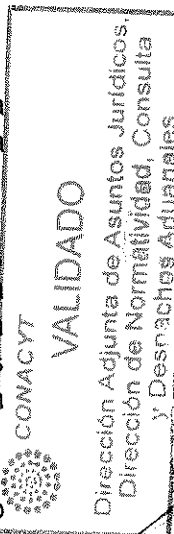 CONACYT
VALIDADO
Dirección Adjunta de Asuntos Jurídicos,
Dirección de Normatividad, Consulta
y Despachos Aduanales